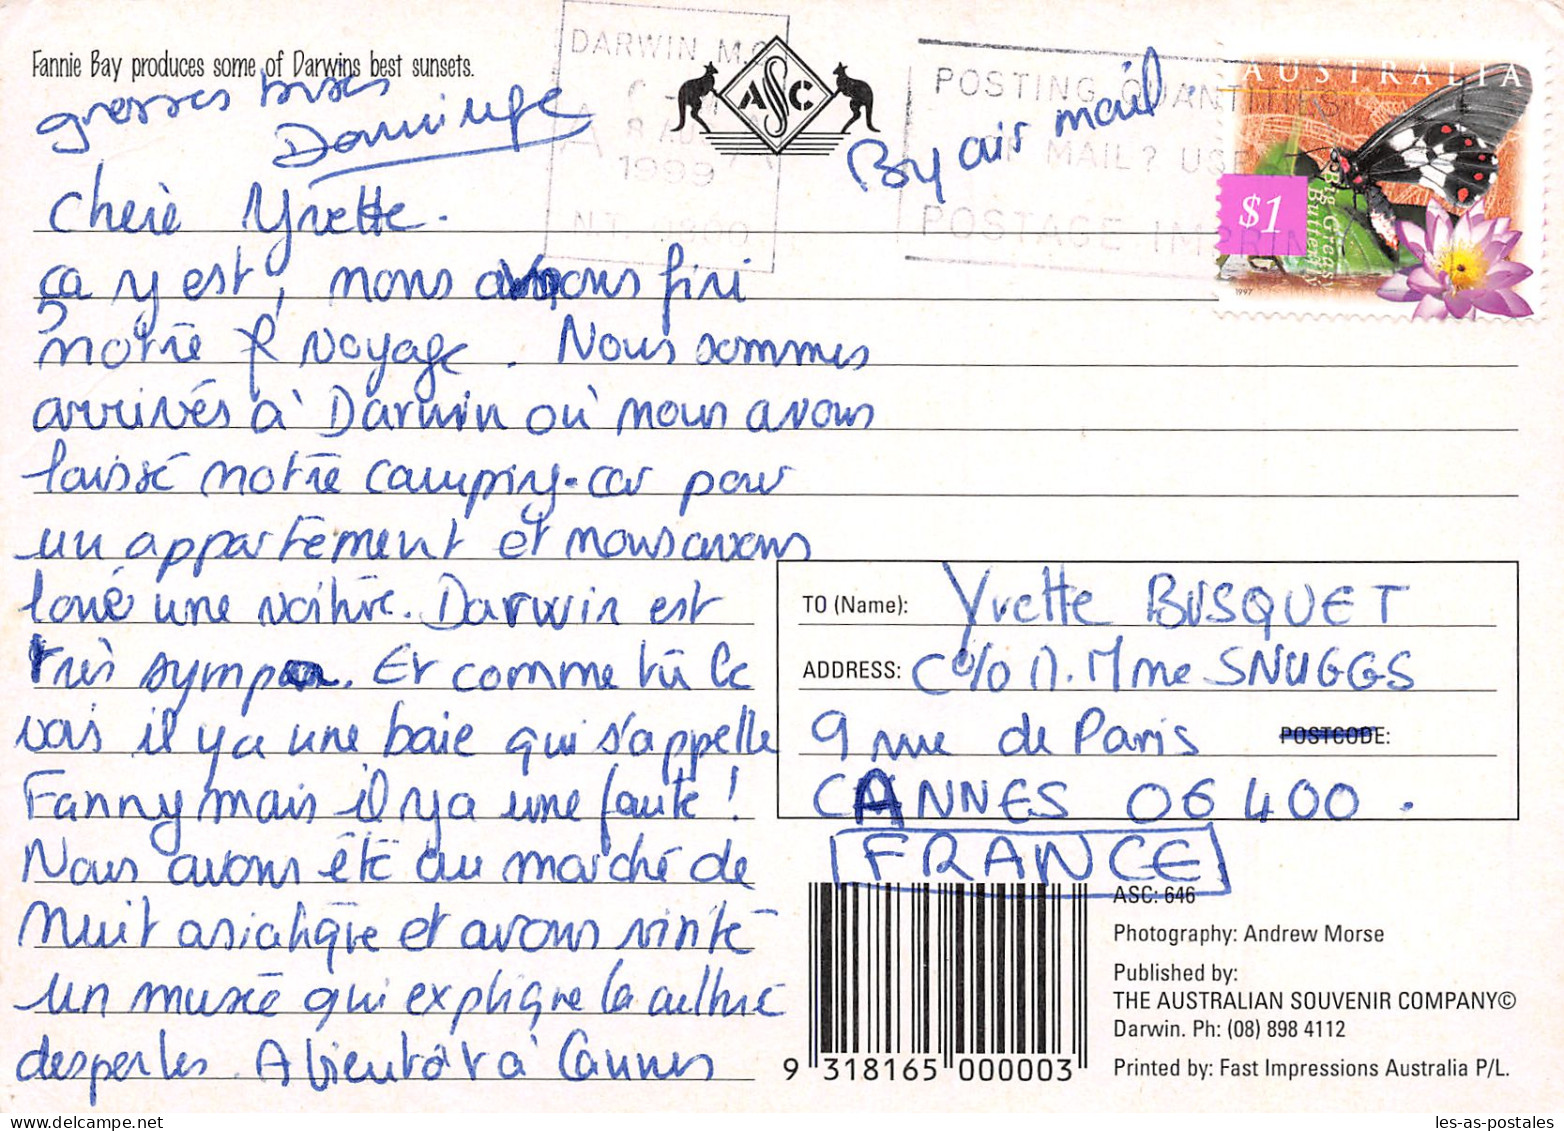 Fannie Bay produces some of Darwins best sunsets.
grosses bises
Dominique
DARWIN M.C
8 AUG
1999
N.T. 0800
ASC
POSTING QUANTITIES
OF MAIL? USE
POSTAGE IMPRIN
By air mail.
AUSTRALIA
$1
Big Greasy
Butterfly
1997
Chère Yvette.
ça y est, nous avons fini
notre voyage. Nous sommes
arrivés à Darwin où nous avons
laissé notre camping-car pour
un appartement et nous avons
loué une voiture. Darwin est
très sympa. Et comme tu le
vois il y a une baie qui s'appelle
Fanny mais il y a une faute !
Nous avons été au marché de
nuit asiatique et avons visité
un musée qui explique la culture
des perles. A bientôt à Cannes
TO (Name): Yvette BUSQUET
ADDRESS: C%o M. Mme SNUGGS
9 rue de Paris POSTCODE:
CANNES 06400.
FRANCE
ASC: 646
Photography: Andrew Morse
Published by:
THE AUSTRALIAN SOUVENIR COMPANY©
Darwin. Ph: (08) 898 4112
Printed by: Fast Impressions Australia P/L.
9 318165 000003
les-as-postales